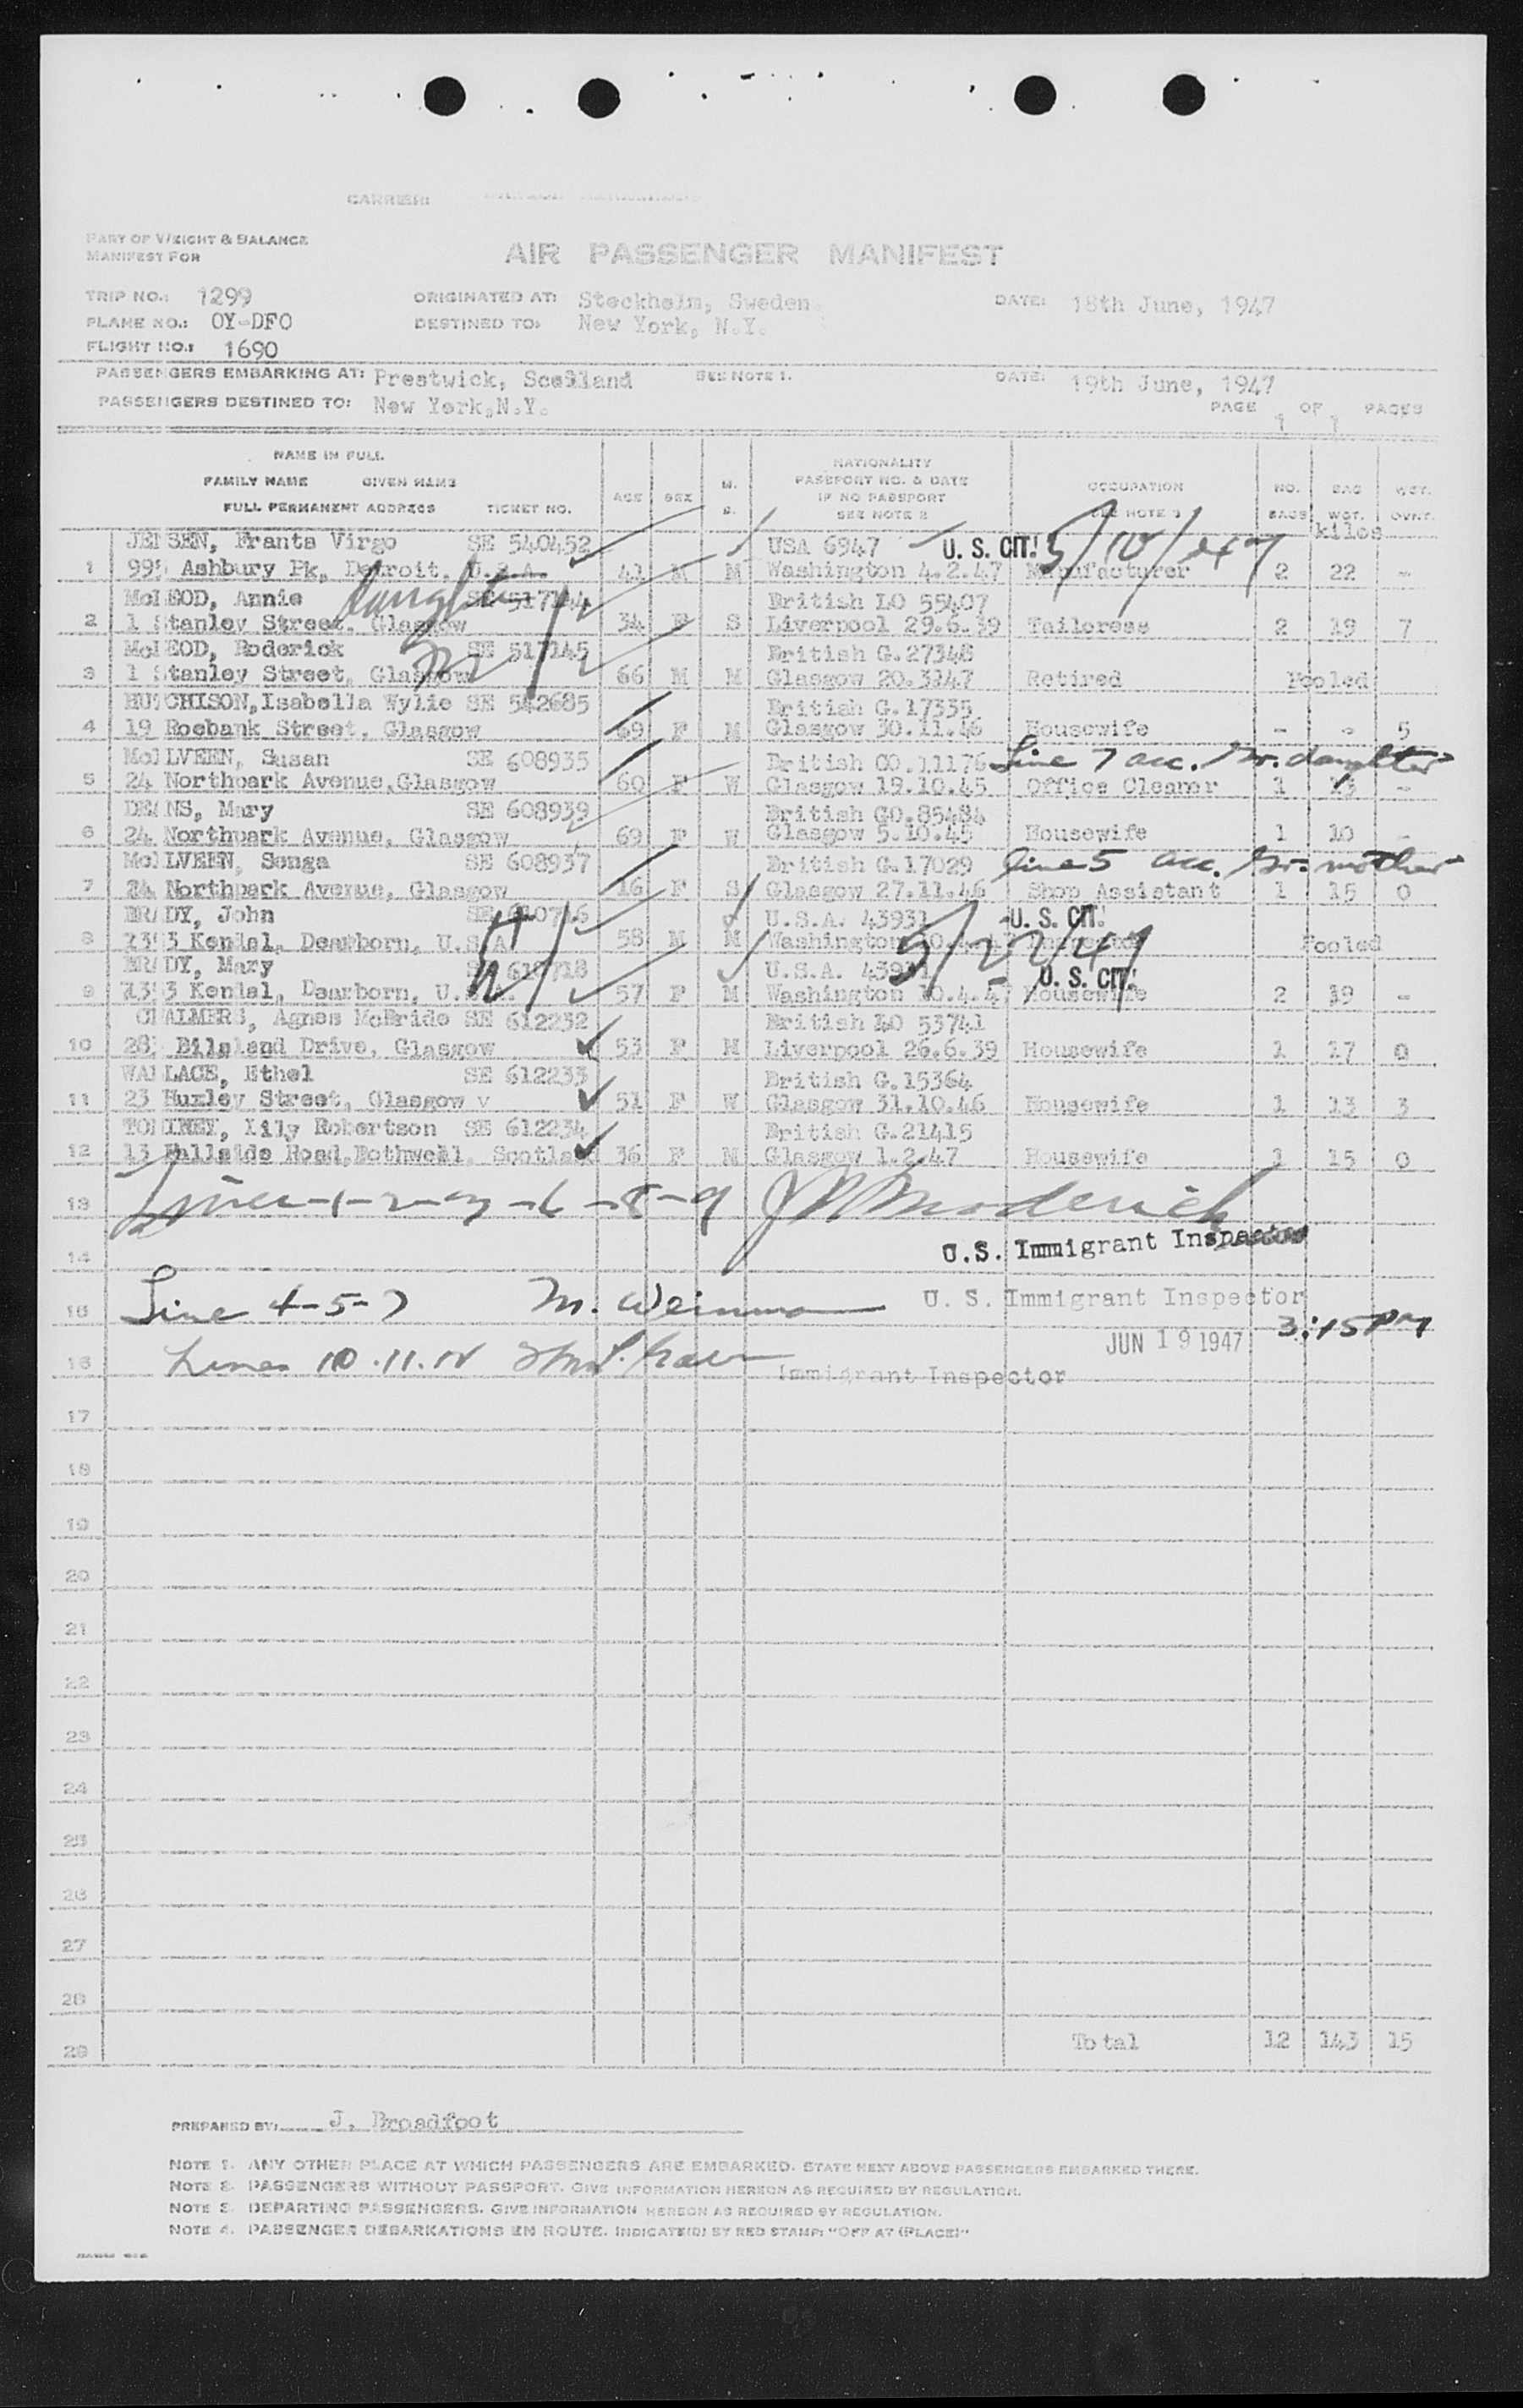 CARRIER:
PART OF WEIGHT & BALANCE
MANIFEST FOR
AIR PASSENGER MANIFEST
TRIP NO.: 1299 ORIGINATED AT: Stockholm, Sweden. DATE: 18th June, 1947
PLANE NO.: OY-DFO DESTINED TO: New York, N.Y.
FLIGHT NO.: 1690
PASSENGERS EMBARKING AT: Prestwick, Scotland SEE NOTE 1. DATE: 19th June, 1947
PASSENGERS DESTINED TO: New York,N.Y. PAGE 1 OF 1 PAGES
NAME IN FULL
FAMILY NAME GIVEN NAME
FULL PERMANENT ADDRESS TICKET NO. AGE SEX M. S. NATIONALITY PASSPORT NO. & DATE IF NO PASSPORT SEE NOTE 2 OCCUPATION SEE NOTE 3 NO. BAGS BAG WGT. WGT. OVNT.
kilos
JENSEN, Frants Virgo SE 540452 USA 6947 U. S. CIT. 5/10/47
1 Ashbury Pk, Detroit, U.S.A. 41 M M Washington 4.2.47 Manufacturer 2 22 -
McLEOD, Annie daughter British LO 55407
2 1 Stanley Street. Glasgow 34 F S Liverpool 29.6.39 Tailoress 2 19 7
McLEOD, Roderick SE 517145 British G.27348
3 1 Stanley Street, Glasgow 66 M M Glasgow Retired Pooled
HUTCHISON,Isabella Wylie SE 542685 British G.17335
4 19 Roebank Street, Glasgow 69 F M Glasgow 30.11.46 Housewife - - 5
McILVEEN, Susan SE 608935 British GO.11176 Line 7 acc. Gr. daughter
5 24 Northpark Avenue,Glasgow 60 F W Glasgow 19.10.45 Office Cleaner 1 13 -
DEANS, Mary SE 608939 British GO.85484
6 24 Northpark Avenue, Glasgow 69 F W Glasgow 5.10.45 Housewife 1 10 -
McILVEEN, Senga SE 608937 British G.17029 line 5 acc. Gr. mother
7 24 Northpark Avenue, Glasgow 16 F S Glasgow 27.11.46 Shop Assistant 1 15 0
BRADY, John U.S.A. 43931 U. S. CIT.
8 Kendal, Dearborn, U.S.A. 58 M M Washington 5/22/47 Pooled
BRADY, Mary U.S.A. 43931 U. S. CIT.
9 Kendal, Dearborn, U.S.A. 57 F M Washington 10.4.47 Housewife 2 19 -
CHALMERS, Agnes McBride SE 612232 British LO 53741
10 Bilsland Drive, Glasgow 53 F M Liverpool 26.6.39 Housewife 1 17 0
WALLACE, Ethel SE 612233 British G.15364
11 23 Huxley Street, Glasgow v 51 F W Glasgow 31.10.46 Housewife 1 13 3
Lily Robertson SE 612234 British G.21415
12 13 Fallside Road,Bothwell. Scotland 36 F M Glasgow 1.2.47 Housewife 1 15 0
13 Lines-1-2-3-6-8-9
14 U.S. Immigrant Inspector
15 Line 4-5-7 M. Weinman U. S. Immigrant Inspector
JUN 19 1947 3:15PM
16 Lines 10.11.12 Immigrant Inspector
17
18
19
20
21
22
23
24
25
26
27
28
29 Total 12 143 15
PREPARED BY: J. Broadfoot
NOTE 1. ANY OTHER PLACE AT WHICH PASSENGERS ARE EMBARKED. STATE NEXT ABOVE PASSENGERS EMBARKED THERE.
NOTE 2. PASSENGERS WITHOUT PASSPORT. GIVE INFORMATION HEREON AS REQUIRED BY REGULATION.
NOTE 3. DEPARTING PASSENGERS. GIVE INFORMATION HEREON AS REQUIRED BY REGULATION.
NOTE 4. PASSENGER DEBARKATIONS EN ROUTE. INDICATE(D) BY RED STAMP: "OFF AT (PLACE)"